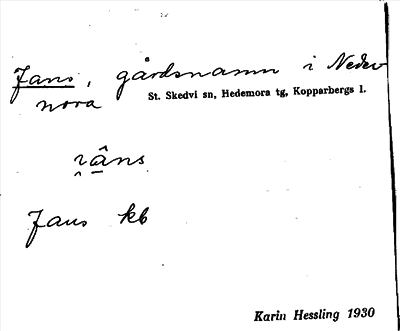 Jans, gårdsnamn i Neder
nora
St. Skedvi sn, Hedemora tg, Kopparbergs l.
Jans kb
Karin Hessling 1930